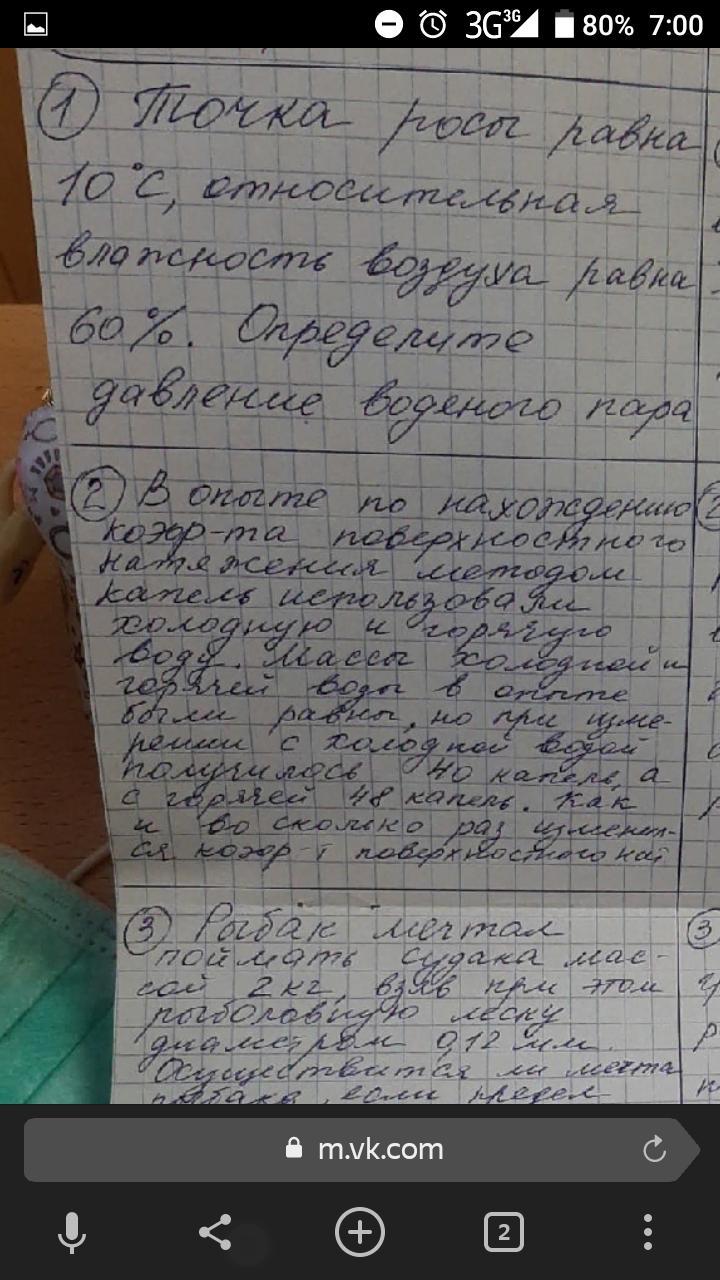 3G 3G 80% 7:00
1 Точка росы равна
10°С, относительная
влажность воздуха равна
60%. Определите
давление водяного пара
2 В опыте по нахождению
коэф-та поверхностного
натяжения методом
капель использовали
холодную и горячую
воду. Массы холодной и
горячей воды в опыте
были равны, но при изме-
рении с холодной водой
получилось 40 капель, а
с горячей 48 капель. Как
и во сколько раз изменит-
ся коэф-т поверхностного нат
3 Рыбак мечтал
поймать судака мас-
сой 2 кг, взяв при этом
рыболовную леску
диаметром 0,12 мм.
Осуществится ли мечта
рыбака, если предел
3
m.vk.com
2